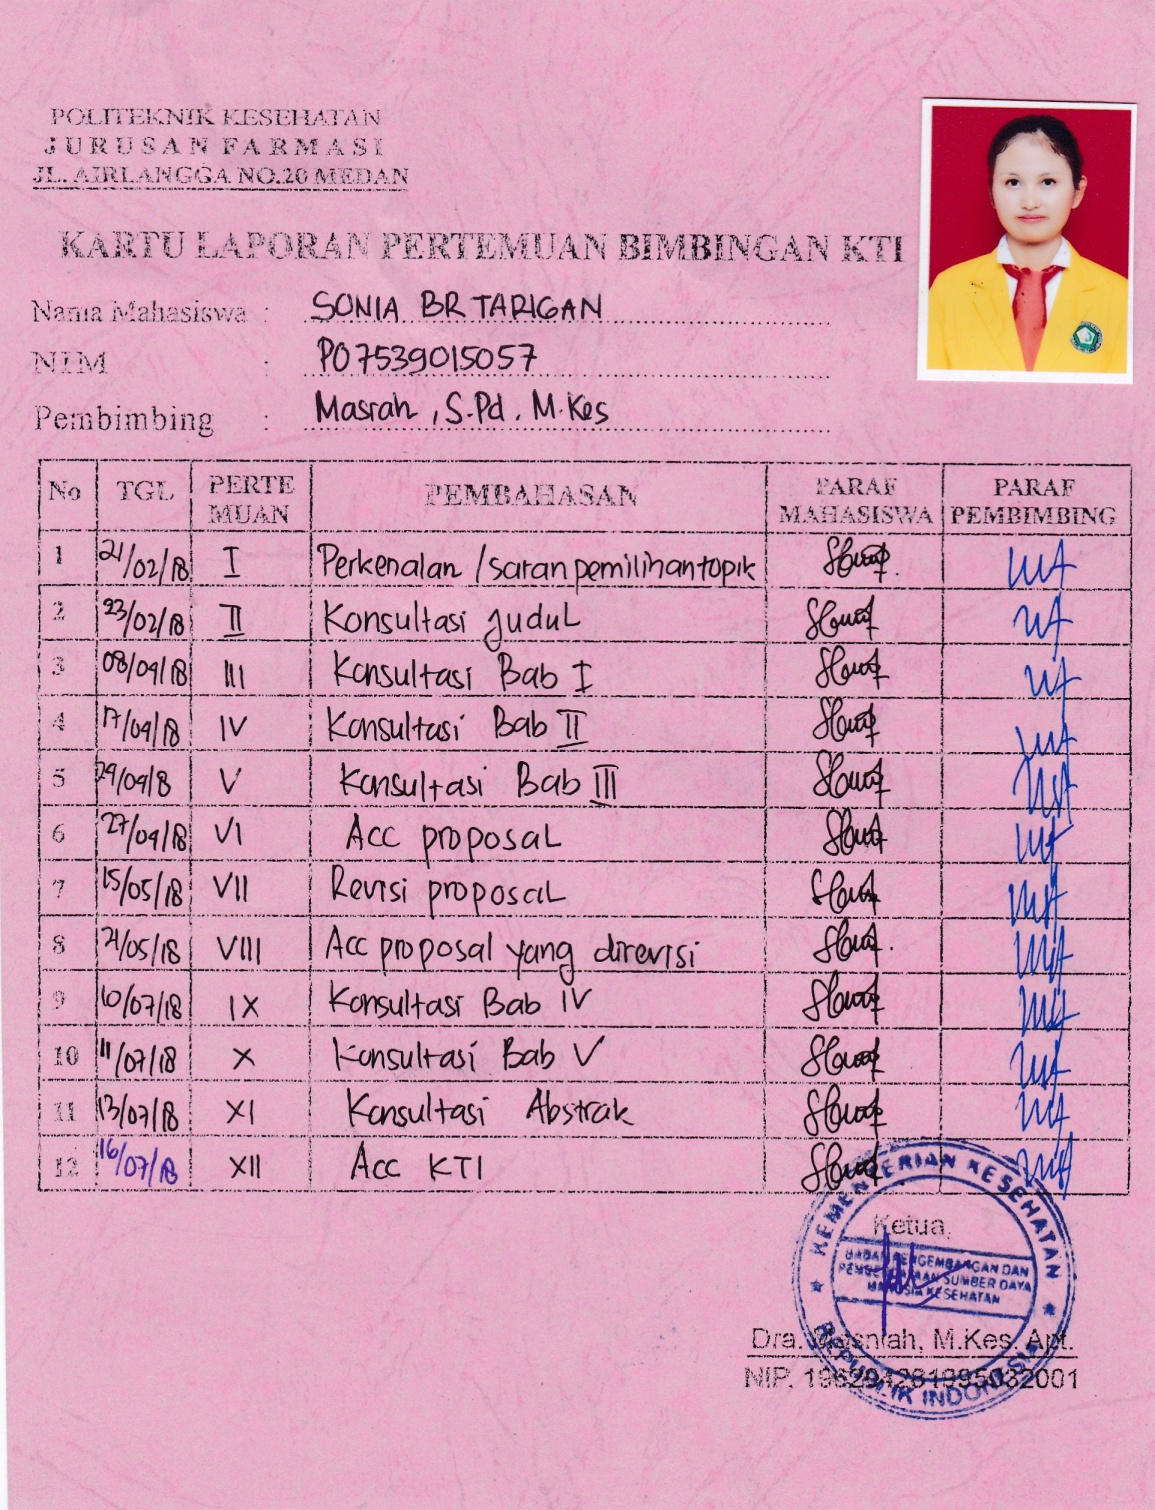 POLITEKNIK KESEHATAN
JURUSAN FARMASI
JL. AIRLANGGA NO.20 MEDAN
KARTU LAPORAN PERTEMUAN BIMBINGAN KTI
Nama Mahasiswa : SONIA BR TARIGAN
NIM : P07539015057
Pembimbing : Masrah, S.Pd. M.Kes
No TGL PERTE MUAN PEMBAHASAN PARAF MAHASISWA PARAF PEMBIMBING
1 21/02/18 I Perkenalan /saran pemilihan topik
2 23/02/18 II Konsultasi judul
3 08/04/18 III Konsultasi Bab I
4 17/04/18 IV Konsultasi Bab II
5 V Konsultasi Bab III
6 27/04/18 VI Acc proposal
7 15/05/18 VII Revisi proposal
8 21/05/18 VIII Acc proposal yang direvisi
9 10/07/18 IX Konsultasi Bab IV
10 11/07/18 X Konsultasi Bab V
11 13/07/18 XI Konsultasi Abstrak
12 16/07/18 XII Acc KTI
KEMENTERIAN KESEHATAN
Ketua,
BADAN PENGEMBANGAN DAN
PEMBERDAYAAN SUMBER DAYA
MANUSIA KESEHATAN
Dra. Masniah, M.Kes. Apt.
NIP. 196204281995032001
REPUBLIK INDONESIA